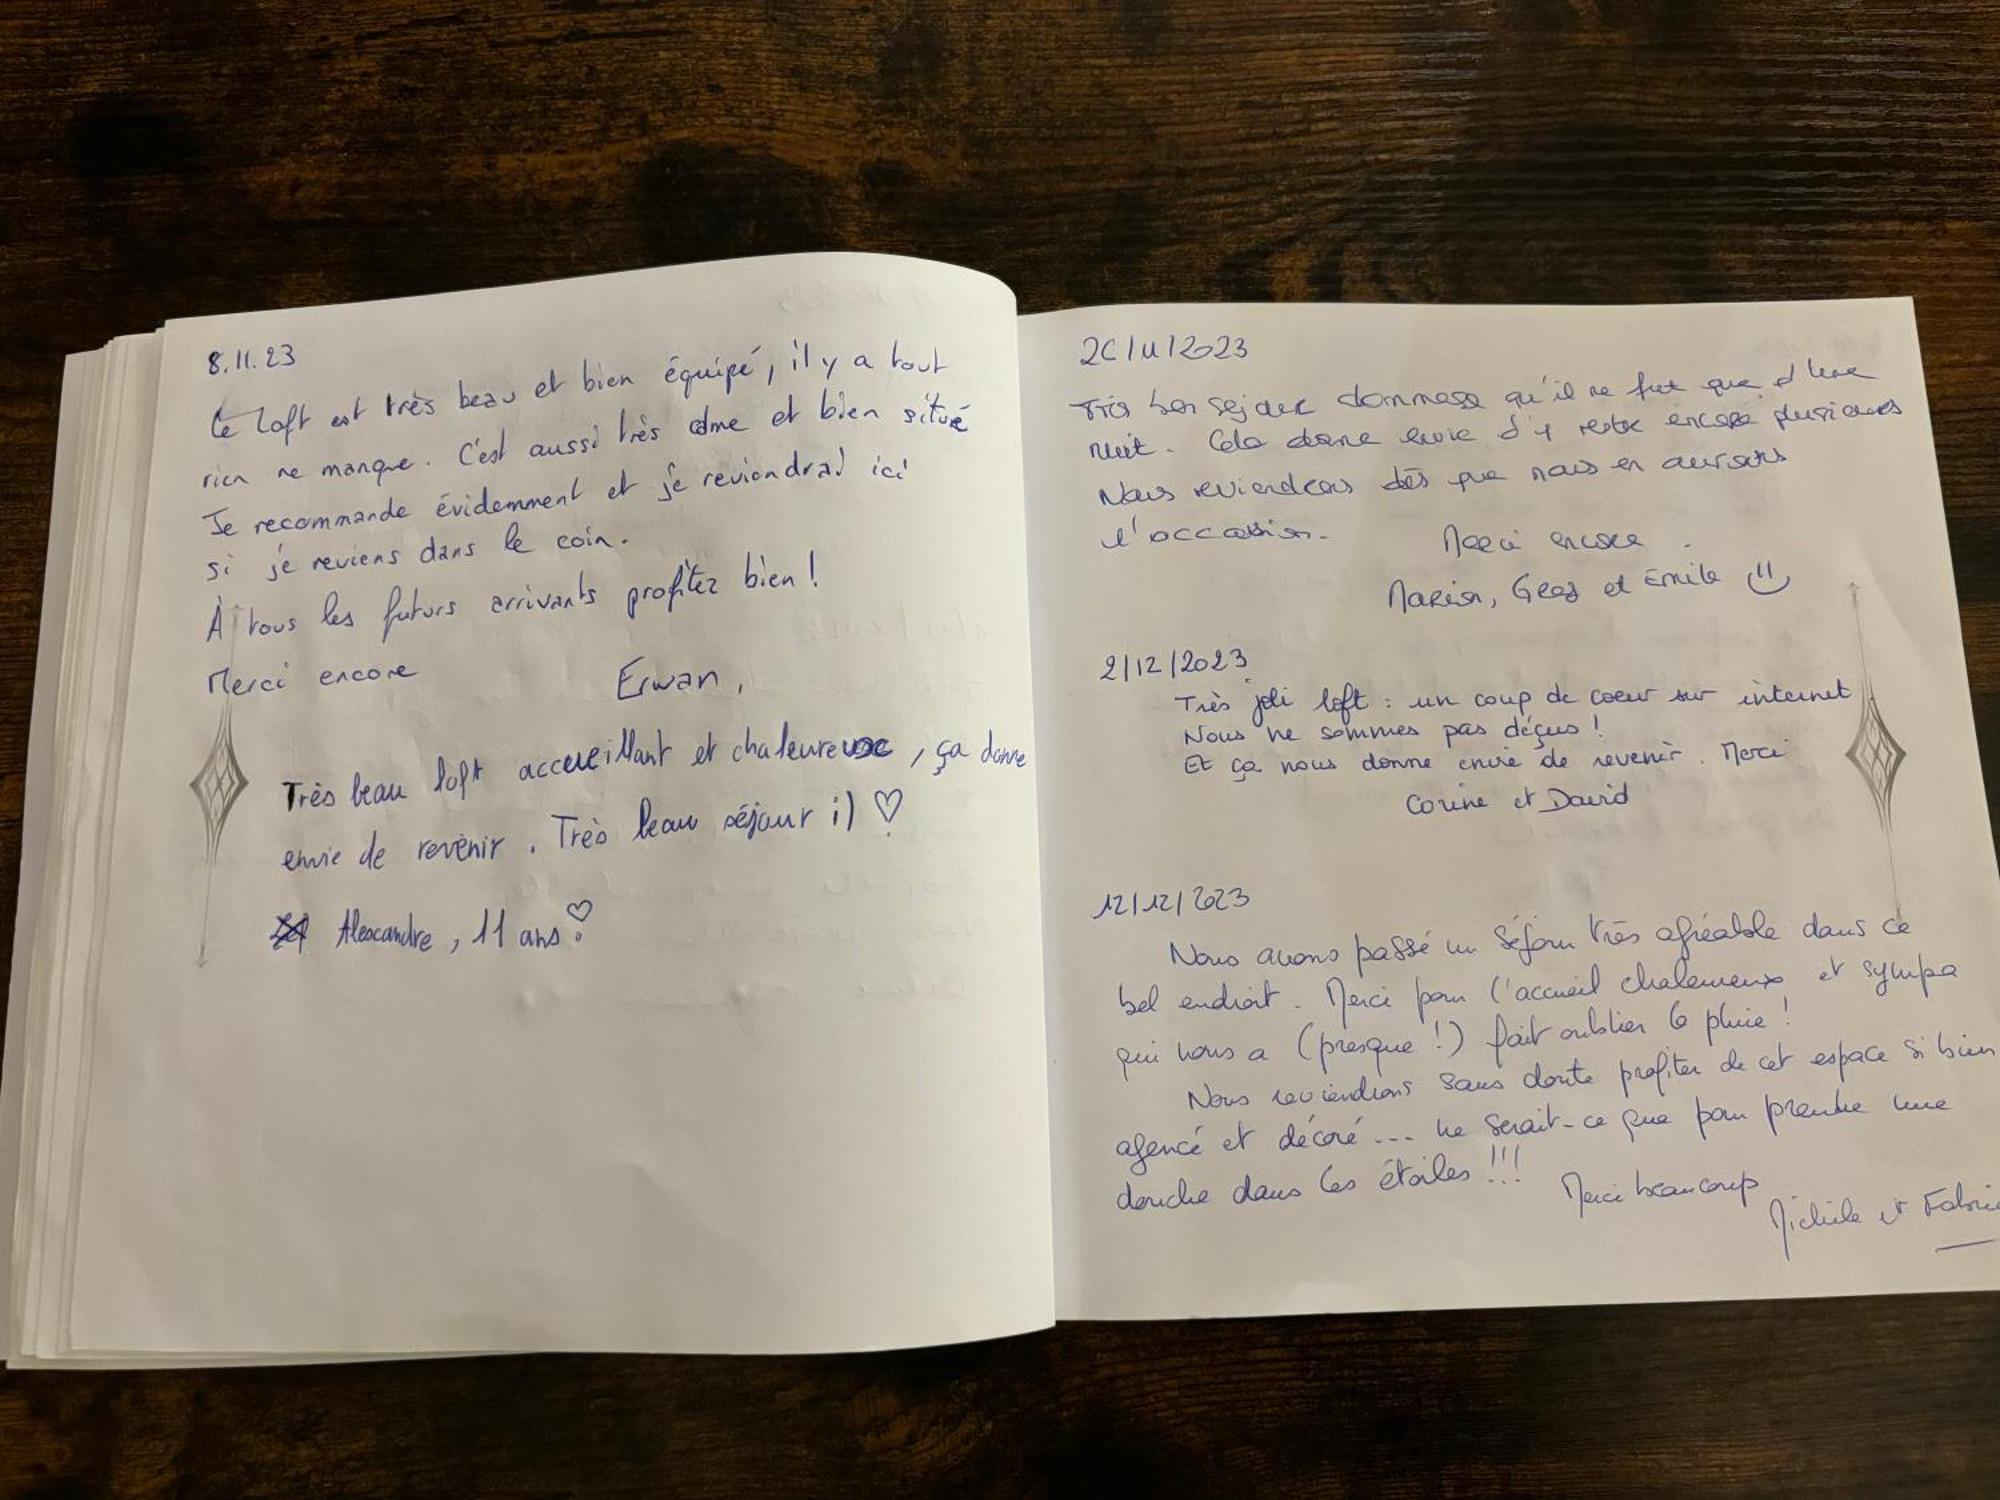 8.11.23
Ce loft est très beau et bien équipé, il y a tout
rien ne manque. C'est aussi très calme et bien situé
Je recommande évidemment et je reviendrai ici
si je reviens dans le coin.
À tous les futurs arrivants profitez bien !
Merci encore
Erwan,
Très beau loft accueillant et chaleureuse, ça donne
envie de revenir. Très beau séjour ;) ♡
Alexandre, 11 ans ♡
/2023
Très bon sejour dommage qu'il ne fut que d'une
nuit. Cela donne envie d'y rester encore plusieurs
Nous reviendrons dès que nous en aurons
l'occasion.
Merci encore.
et Emile
2/12/2023
Très joli loft : un coup de coeur sur internet
Nous ne sommes pas déçus !
Et ça nous donne envie de revenir. Merci
Corine et David
12/12/2023
Nous avons passé un séjour très agréable dans ce
bel endroit. Merci pour l'accueil chaleureux et sympa
qui nous a (presque !) fait oublier la pluie !
Nous reviendrons sans doute profiter de cet espace si bien
agencé et décoré... ne serait-ce que pour prendre une
douche dans les étoiles !!!
Merci beaucoup
Michèle et